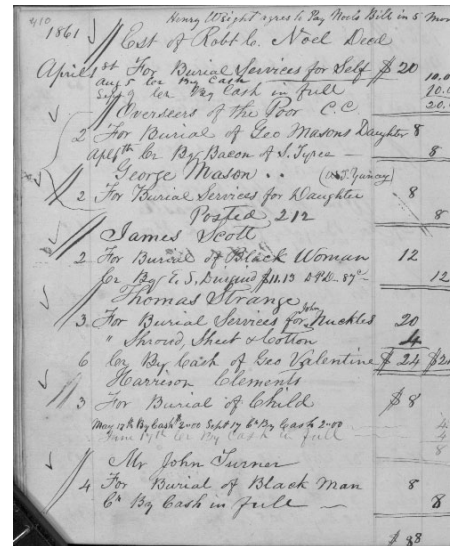 410 Henry Wright agrees to Pay Noels Bill in 5 Mon
1861 Est of Robt C. Noel Decd
April 1st For Burial Services for Self $ 20
Aug 5 Cr By Cash 10.0
Sept 9 Cr By Cash in full 10.0
20.
Overseers of the Poor C.C
2 For Burial of Geo Masons Daughter 8
Apl Cr By Bacon of S. Tyree 8
George Mason
2 For Burial Services for Daughter 8
Posted 212 8
James Scott
2 For Burial of Black Woman 12
Cr By E. S. $11.13 87c 12
Thomas Strange
3 For Burial Services for John Nuckles 20
" Shroud, Sheet & Cotton 4
6 Cr By Cash of Geo Valentine $ 24 $24
Harrison Clements
3 For Burial of Child $ 8
May 13th By Cash 2.00 Sept 17 Cr By Cash 2.00 4
June 17th Cr By Cash in full 4
8
Mr John Turner
4 For Burial of Black Man 8
Cr By Cash in full 8
$ 88